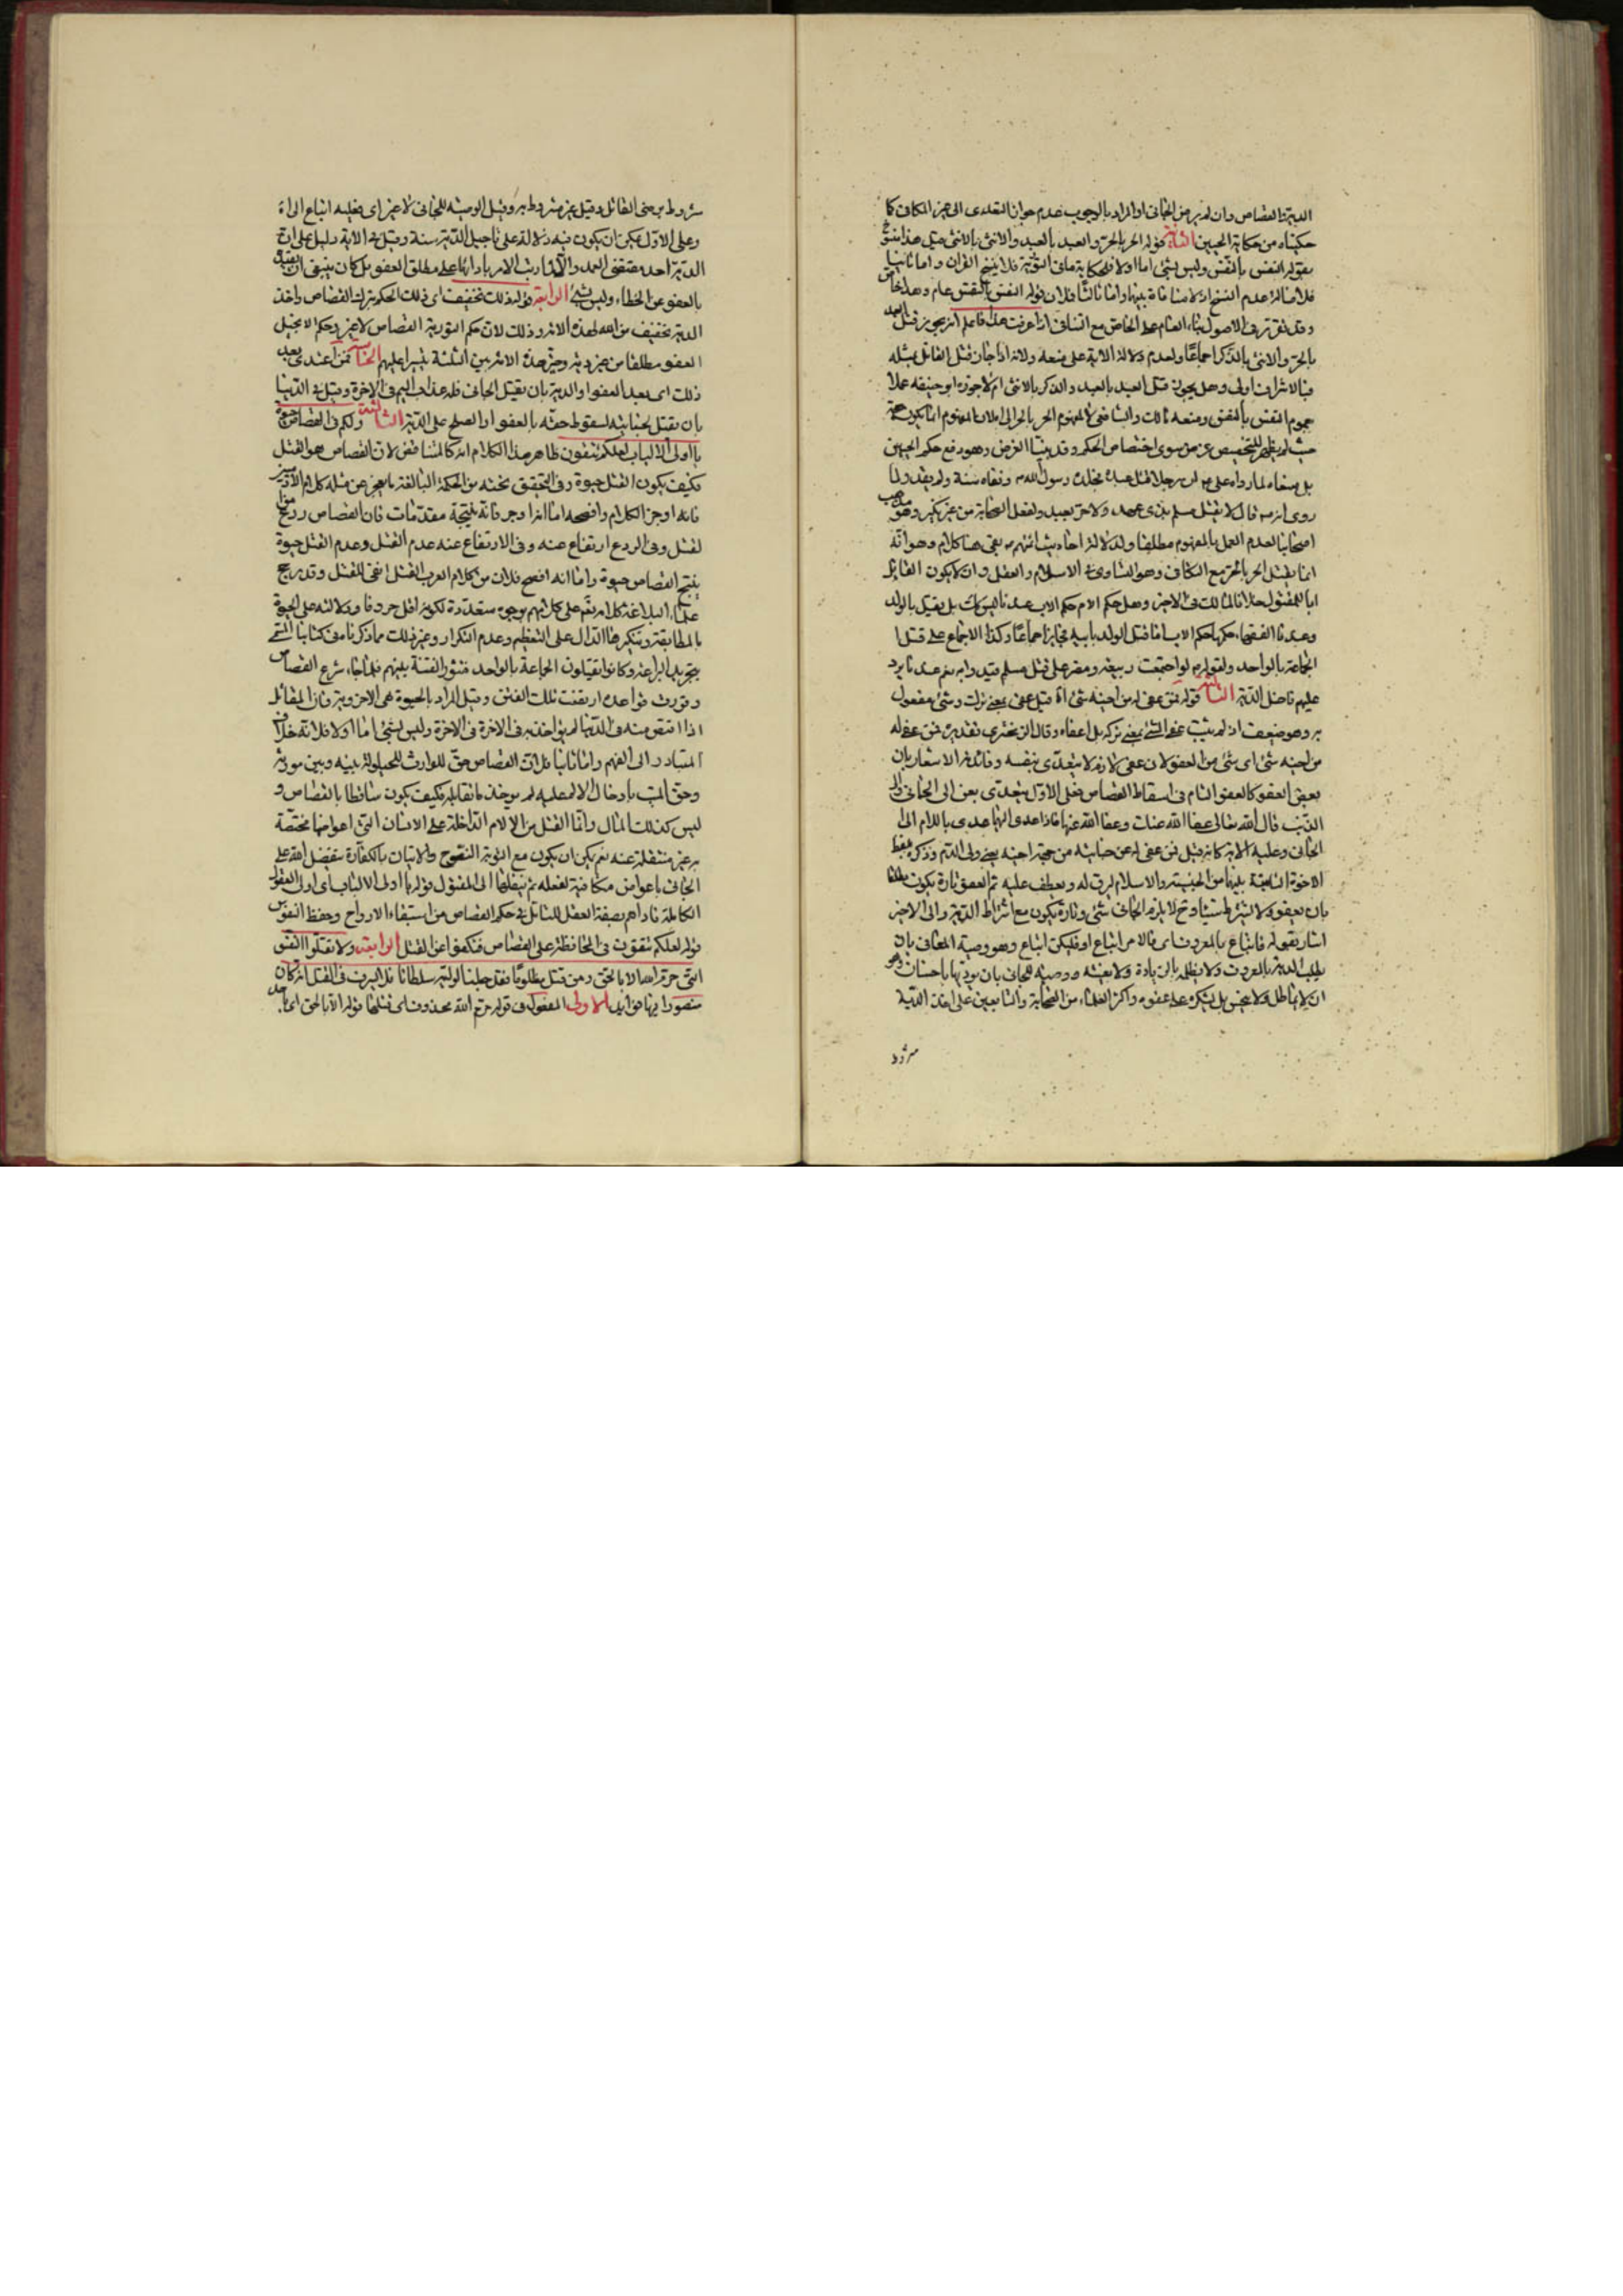 الدية بالقصاص وان لم يرض الجاني او المراد بالوجوب عدم جواز التعدى الى غير المكافى كما
حكيناه من حكاية الحيين الثانية قوله الحر بالحر والعبد بالعبد والانثى بالانثى قيل هذا منسوخ
بقوله النفس بالنفس وليس بشئ اما اولا فلحكاية ما فى التورية فلا ينسخ القران واما ثانيا
فلاصالة عدم النسخ اذ لا منافاة بينهما واما ثالثا فلان قوله النفس بالنفس عام وهذا خاص
وقد تقرر فى الاصول بناء العام على الخاص مع التنافى اذا عرفت هذا فاعلم انه يجوز قتل العبد
بالحر والانثى بالذكر اجماعا ولعدم دلالة الاية على منعه ولانه اذا جاز قتل القاتل بمثله
فبالاشرف اولى وهل يجوز قتل العبد بالعبد والذكر بالانثى ام لا جوزه ابو حنيفه عملا
بعموم النفس بالنفس ومنعه مالك والشافعى لا لمفهوم الحر بالحر الى اخره لان المفهوم انما يكون حجة
حيث لم يظهر للتخصيص غرض سوى اختصاص الحكم وقد بينا الغرض وهو دفع حكم الحيين
بل منعاه لما رواه على ع ان رجلا قتل عبده فجلده رسول الله ص ونفاه سنة ولم يقده ولما
روى انه ص قال لا يقتل مسلم بذى عهد ولا حر بعبد ولفعل الصحابة من غير نكير وهو مذهب
اصحابنا لعدم العمل بالمفهوم مطلقا ولدلالة احاديث ائمتهم ع بقى هنا كلام وهو انه
انما يقتل الحر بالحر مع التكافى وهو التساوى فى الاسلام والعقل وان لا يكون القاتل
ابا للمقتول خلافا لمالك فى الاخير وهل حكم الام حكم الاب عندنا ليس كذلك بل يقتل بالولد
وعند الفقهاء حكمها حكم الاب اما قتل الولد بابيه فجايز اجماعا وكذا الاجماع على قتل
الجماعة بالواحد ولقوله ص لو اجتمعت ربيعة ومضر على قتل مسلم قيدوا به نعم عندنا يرد
عليهم فاضل الدية الثالثة قوله فمن عفى له من اخيه شئ اه قيل عفى بمعنى ترك وشئ مفعول
به وهو ضعيف اذ لم يثبت عفا الشئ بمعنى تركه بل اعفاه وقال الزمخشرى تقديره فمن عفى له
من اخيه شئ اى شئ من العفو لان عفى لازم لا يتعدى بنفسه وفائدته الاشعار بان
بعض العفو كالعفو التام فى اسقاط القصاص فعلى الاول يتعدى بعن الى الجانى والى
الذنب قال الله تعالى عفا الله عنك وعفا الله عنها فاذا عدى اليهما عدى باللام الى
الجانى وعليه الاية كانه قيل فمن عفى له عن جنايته من جهة اخيه يعنى ولى الدم وذكره بلفظ
الاخوة الثابتة بينهما من الجنسية والاسلام ليرق له ويعطف عليه ثم العفو تارة يكون مطلقا
بان يعفو ولا يشترط شيئا وح لا يلزم الجانى شئ وتارة يكون مع اشتراط الدية والى الاخير
اشار بقوله فاتباع بالمعروف اى فالامر اتباع او فليكن اتباع وهو وصية للعافى بان
يطلب الدية بالمعروف ولا يظلمه بالزيادة ولا يعنفه ووصية للجانى بان يوديها باحسان وهو
ان لا يماطل ولا يبخس بل يشكره على عفوه واكثر العلماء من الصحابة والتابعين على اخذ الدية
مشروط
مشروط برضى القاتل وقيل غير مشروط به وقيل الوصية للجانى لا غير اى فعليه اتباع اه
وعلى الاول يمكن ان يكون فيه دلالة على تاجيل الدية سنة وقيل فى الاية دليل على ان
الدية احد مقتضى العمد والا لما رتب الامر باداءها على مطلق العفو بل كان ينبغى ان يقيد
بالعفو عن الخطاء وليس بشئ الرابعة قوله ذلك تخفيف اى ذلك الحكم بترك القصاص واخذ
الدية تخفيف من الله لهذه الامة وذلك لان حكم التورية القصاص لا غير وحكم الانجيل
العفو مطلقا من غير دية وخير هذه الامة بين الثلثة تيسيرا عليهم الخامسة فمن اعتدى بعد
ذلك اى بعد العفو او الدية بان يقتل الجانى فله عذاب اليم فى الاخرة وقيل فى الدنيا
بان يقتل بجنايته لسقوط حقه بالعفو او الصلح على الدية الثالثة ولكم فى القصاص حيوة
يا اولى الالباب لعلكم تتقون ظاهر هذا الكلام انه كالمتناقض لان القصاص هو القتل
فكيف يكون القتل حيوة وفى التحقيق تحته من الحكمة البالغة ما يعجز عن مثله كلام الآدميين
فانه اوجز الكلام وافصحه اما انه اوجز فانه نتيجة مقدمات فان القصاص ردع من
القتل وفى الردع ارتفاع عنه وفى الارتفاع عنه عدم القتل وعدم القتل حيوة
ينتج القصاص حيوة واما انه افصح فلان من كلام العرب القتل انفى للقتل وقد رجح
علماء البلاغة كلامه تعم على كلامهم بوجوه متعددة لكونه اقل حروفا ودلالته على الحيوة
بالمطابقة وتنكيرها الدال على التعظيم وعدم التكرار وغير ذلك مما ذكرنا فى كتابنا المسمى
بتجريد البراعة وكانوا يقتلون الجماعة بالواحد فتثور الفتنة بينهم فلما جاء شرع القصاص
وقررت قواعده ارتفعت تلك الفتن وقيل المراد بالحيوة هى الاخروية فان القاتل
اذا اقتص منه فى الدنيا لم يواخذ به فى الاخرة وليس بشئ اما اولا فلانه خلاف
المتبادر الى الفهم واما ثانيا فلان القصاص حق للوارث للحيلولة بينه وبين مورثه
وحق الميت بادخال الالم عليه لم يوخذ ما يقابله فكيف يكون ساقطا بالقصاص و
ليس كذلك المال وانما القتل من الالام الداخلة على الانسان التى اعواضها مختصة
به غير منتقلة عنه نعم يمكن ان يكون مع التوبة النصوح والاتيان بالكفارة يتفضل الله على
الجانى باعواض مكافية لفعله ثم ينقلها الى المقتول قوله يا اولى الالباب اى اولى العقول
الكاملة ناداهم بصفة العقل للتامل فى حكم القصاص من استبقاء الارواح وحفظ النفوس
قوله لعلكم تتقون فى المحافظة على القصاص فتكفوا عن القتل الرابعة ولا تقتلوا النفس
التى حرم الله الا بالحق ومن قتل مظلوما فقد جعلنا لوليه سلطانا فلا يسرف فى القتل انه كان
منصورا فيها فوايد الاولى المفعول فى قوله حرم الله محذوف اى قتلها قوله الا بالحق اى باحد